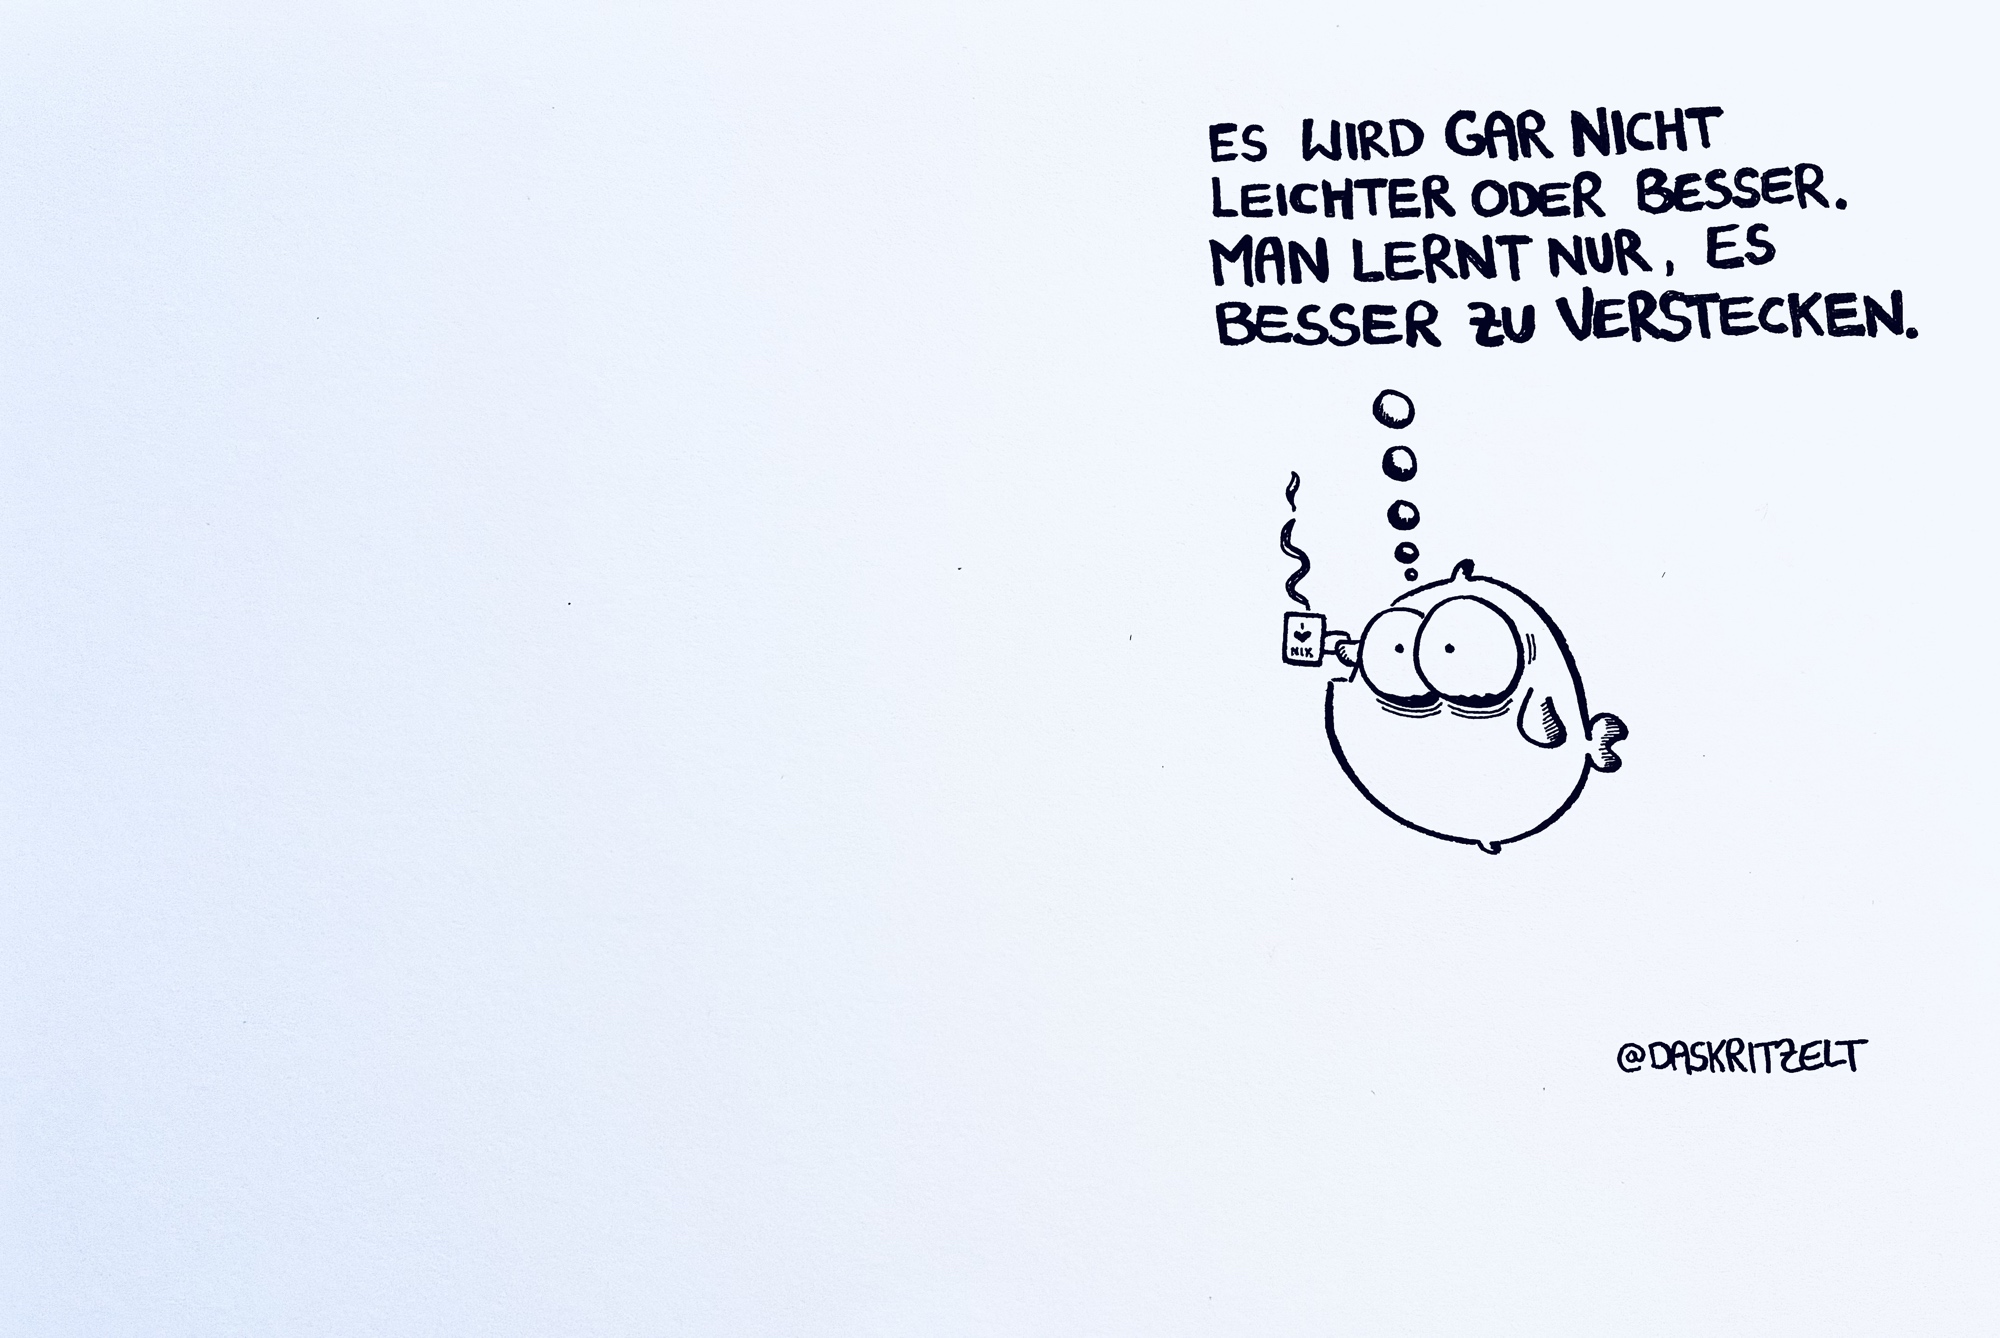 ES WIRD GAR NICHT
LEICHTER ODER BESSER.
MAN LERNT NUR, ES
BESSER ZU VERSTECKEN.
I ♥
NIX
@DASKRITZELT